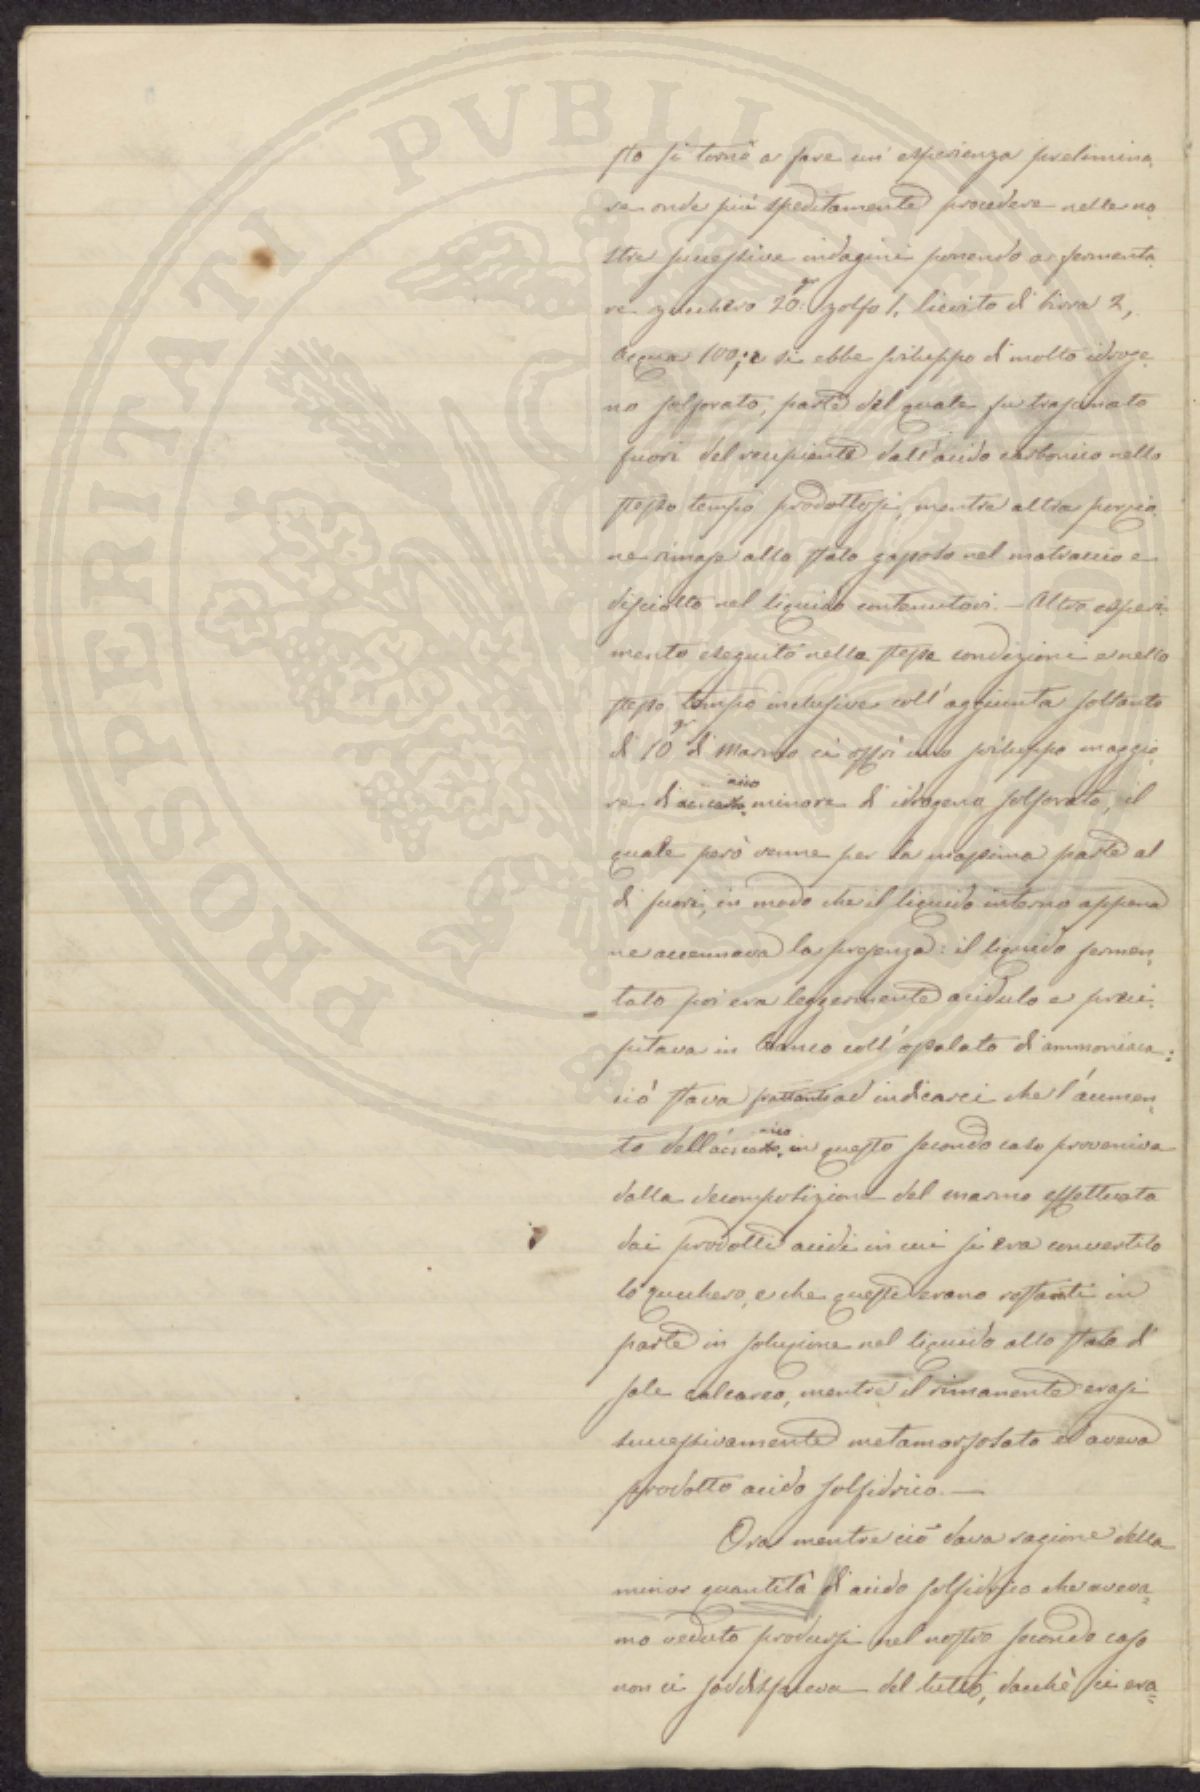 PROSPERITATI PVBLIC
sto si tornò a fare un'esperienza prelimina
re onde più speditamente procedere nelle no
stre successive indagini ponendo a fermenta
re zucchero 20gr zolfo 1, lievito di birra 2,
acqua 100; e si ebbe sviluppo di molto idroge
no solforato, parte del quale fu trasportato
fuori del recipiente dall'acido carbonico nello
stesso tempo prodottosi, mentre altra porzio
ne rimase allo stato gasoso nel matraccio e
disciolto nel liquido contenutovi. — Altro esperi
mento eseguito nelle stesse condizioni e nello
stesso tempo inclusive coll'aggiunta soltanto
di 10gr di marmo ci offrì uno sviluppo maggio
re di minore di idrogeno solforato, il
quale però venne per la massima parte al
di fuori, in modo che il liquido interno appena
ne accennava la presenza: il liquido fermen,
tato poi era leggermente acidulo e preci,
pitava in bianco coll'ossalato di ammoniaca:
ciò stava pertanto ad indicarci che l'aumen,
to dell' in questo secondo caso proveniva
dalla decomposizione del marmo effettuata
dai prodotti acidi in cui si era convertito
lo zucchero, e che questi erano restanti in
parte in soluzione nel liquido allo stato di
sale calcareo, mentre il rimanente erasi
successivamente metamorfosato ed aveva
prodotto acido solfidrico. —
Ora mentre ciò dava ragione della
minor quantità di acido solfidrico che aveva=
mo veduto prodursi nel nostro secondo caso
non ci soddisfaceva del tutto, dacchè ci era=